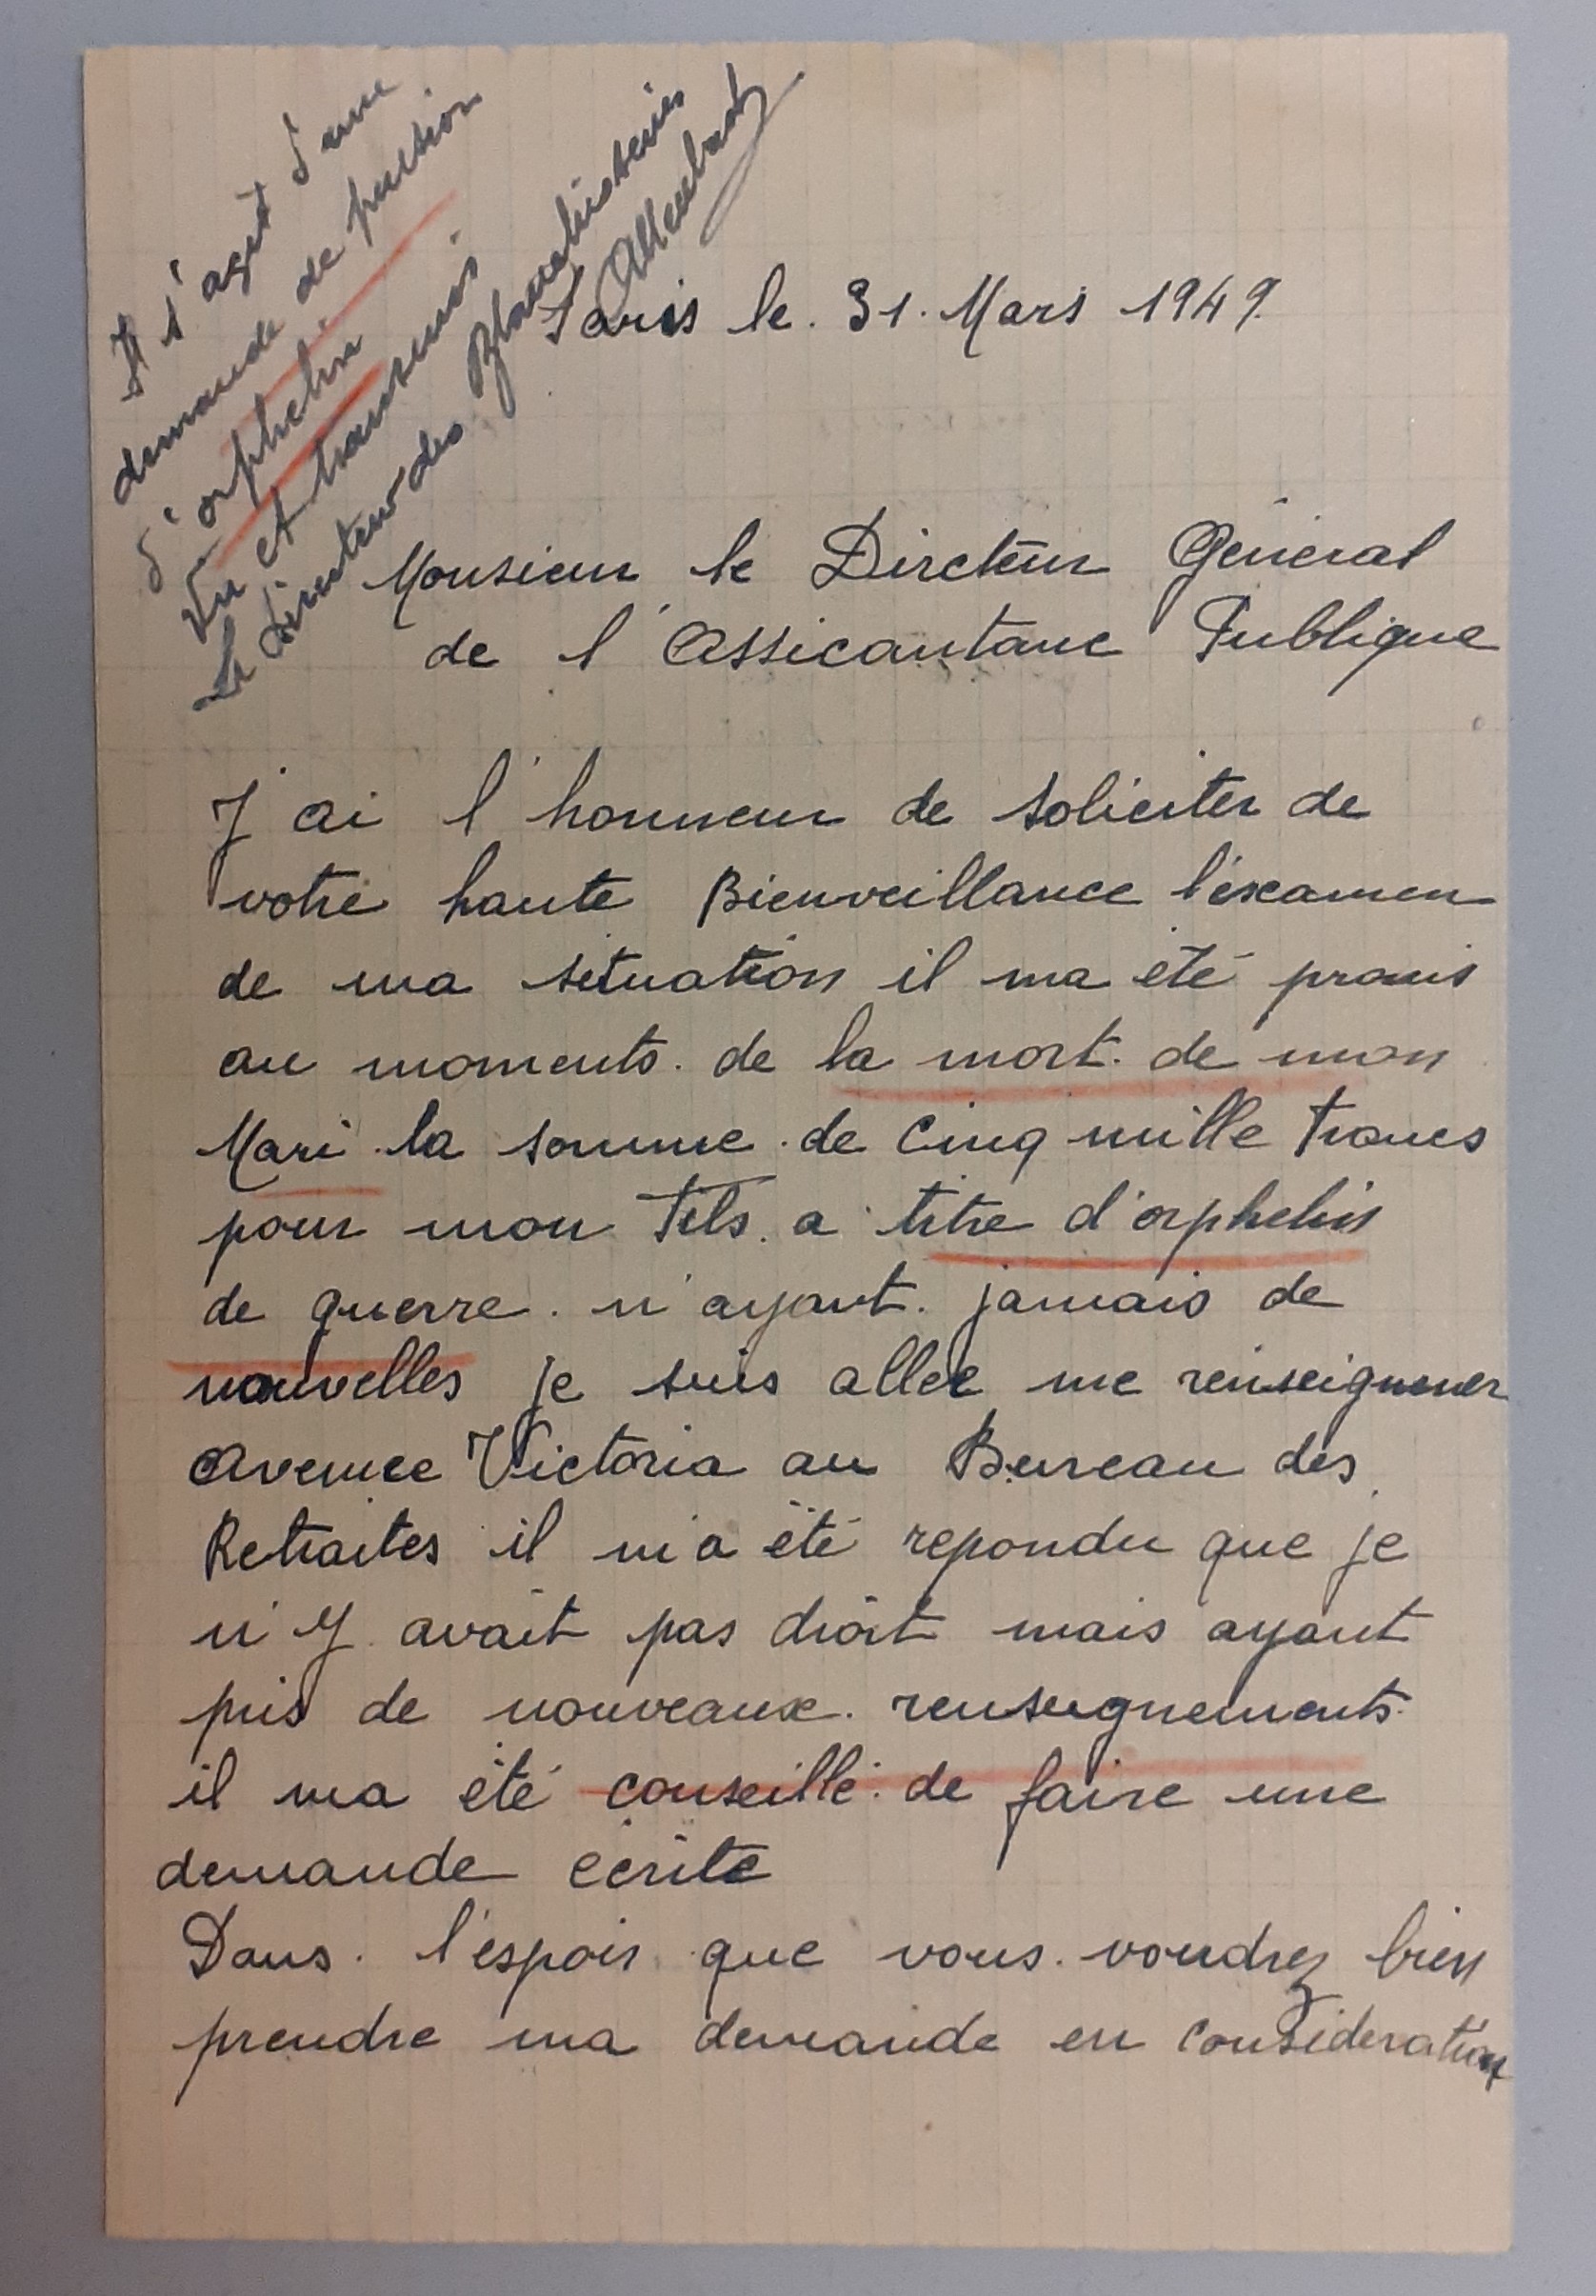 Il s'agit d'une
demande de pension
d'orphelin
Vu et transmis
Le Directeur des Blanchisseries
Paris le. 31. Mars 1949.
Monsieur le Directeur Géneral
de l'Assicantance Publique
J'ai l'honneur de soliciter de
votre haute Bienveillance l'éxamen
de ma situation il ma été promis
au moments. de la mort. de mon
Mari la somme de Cinq mille Francs
pour mon Fils. a titre d'orphelin
de guerre. n'ayant. jamais de
nouvelles je suis allée me renseignener
Avenuee Victoria au Bureau des
Retraites il m'a été repondu que je
n'y avait pas droit mais ayant
pris de nouveaux. renseignements.
il ma été conseillé. de faire une
demande écrite
Dans. l'espoir que vous. voudrez bien
prendre ma demande en consideration